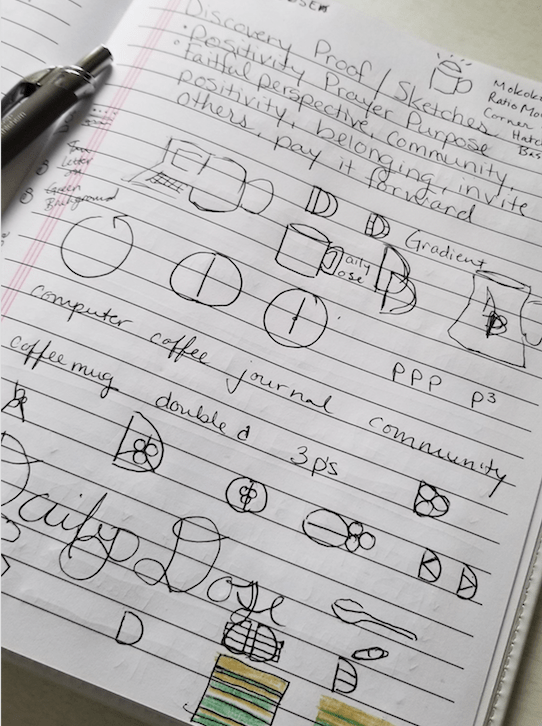 Discovery Proof / Sketches
• Positivity Prayer Purpose
faithful perspective, community,
positivity, belonging, invite
others, pay it forward
Ratio
Corner
Letter
Green
Background
D
D
Gradient
Daily
Dose
PPP P³
computer coffee journal community
coffee mug double d 3p's
Daily Dose
D